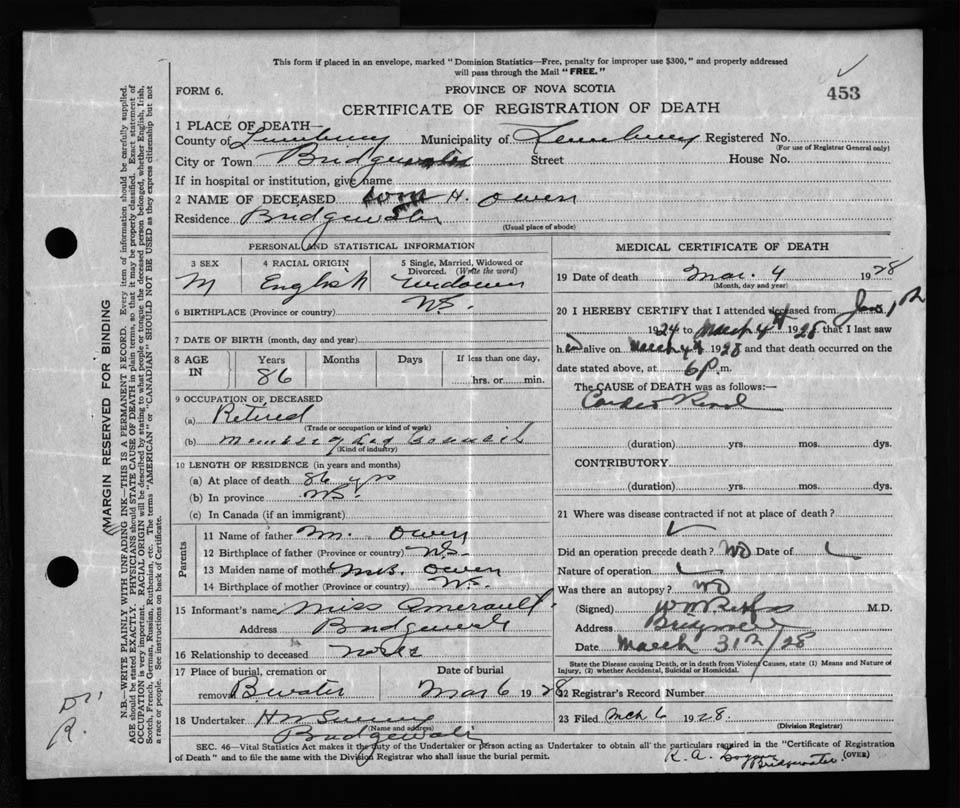 This form if placed in an envelope, marked "Dominion Statistics—Free, penalty for improper use $300," and properly addressed
will pass through the Mail "FREE."
FORM 6.
PROVINCE OF NOVA SCOTIA
453
CERTIFICATE OF REGISTRATION OF DEATH
1 PLACE OF DEATH—
County of Lunenburg Municipality of Lunenburg Registered No.
(For use of Registrar General only)
City or Town Bridgewater Street House No.
If in hospital or institution, give name
2 NAME OF DECEASED H. Owen
Residence Bridgewater
(Usual place of abode)
PERSONAL AND STATISTICAL INFORMATION
3 SEX 4 RACIAL ORIGIN 5 Single, Married, Widowed or Divorced. (Write the word)
M English Widower
6 BIRTHPLACE (Province or country) N.S.
7 DATE OF BIRTH (month, day and year)
8 AGE IN Years Months Days If less than one day,
86 hrs. or min.
9 OCCUPATION OF DECEASED
(a) Retired
(Trade or occupation or kind of work)
(b) Member of Leg Council
(Kind of industry)
10 LENGTH OF RESIDENCE (in years and months)
(a) At place of death 86 yrs
(b) In province N.S.
(c) In Canada (if an immigrant)
Parents
11 Name of father M. Owen
12 Birthplace of father (Province or country) N.S.
13 Maiden name of mother Mrs. Owen
14 Birthplace of mother (Province or country) N.S.
15 Informant's name Miss Amerault
Address Bridgewater
16 Relationship to deceased
17 Place of burial, cremation or removal B.water Date of burial Mar 6 1928
18 Undertaker
(Name and address)
Bridgewater
MEDICAL CERTIFICATE OF DEATH
19 Date of death Mar. 4 1928
(Month, day and year)
20 I HEREBY CERTIFY that I attended deceased from
1924 to March 4th 1928 that I last saw
him alive on March 4th 1928 and that death occurred on the
date stated above, at 6 P.m.
The CAUSE of DEATH was as follows:—
Cardio Renal
(duration) yrs. mos. dys.
CONTRIBUTORY
(duration) yrs. mos. dys.
21 Where was disease contracted if not at place of death?
Did an operation precede death? No Date of
Nature of operation
Was there an autopsy? No
(Signed) M.D.
Address Bridgewater
Date March 31st/28
State the Disease causing Death, or in death from Violent Causes, state (1) Means and Nature of
Injury, (2) whether Accidental, Suicidal or Homicidal.
22 Registrar's Record Number
23 Filed Mch 6 1928.
(Division Registrar)
R. A. Bridgewater.
SEC. 46—Vital Statistics Act makes it the duty of the Undertaker or person acting as Undertaker to obtain all the particulars required in the "Certificate of Registration
of Death" and to file the same with the Division Registrar who shall issue the burial permit.
(OVER)
MARGIN RESERVED FOR BINDING
N.B.—WRITE PLAINLY WITH UNFADING INK—THIS IS A PERMANENT RECORD. Every item of information should be carefully supplied.
AGE should be stated EXACTLY. PHYSICIANS should STATE CAUSE OF DEATH in plain terms, so that it may be properly classified. Exact statement of
OCCUPATION is very important. RACIAL ORIGIN will be described by stating to what people or tongue the deceased person belonged, whether English, Irish,
Scotch, French, German, Russian, Ruthenian, etc. The terms "AMERICAN" or "CANADIAN" SHOULD NOT BE USED as they express citizenship but not
a race or people. See instructions on back of Certificate.